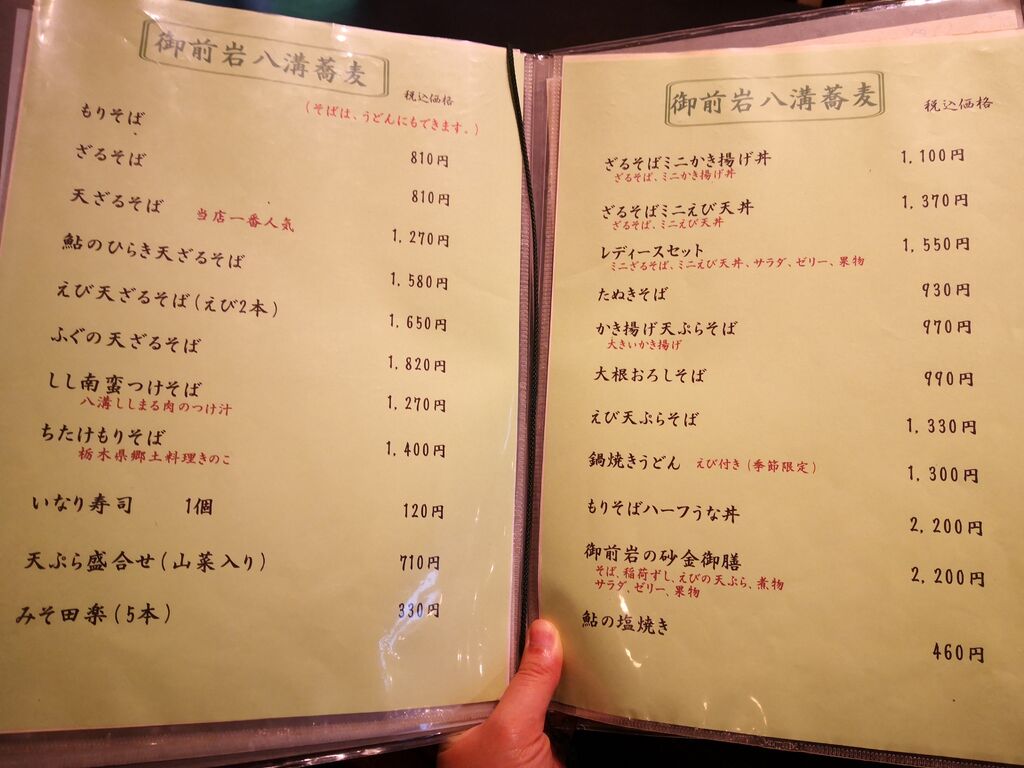 御前岩八溝蕎麦
税込価格
(そばは、うどんにもできます。)
もりそば 810円
ざるそば 810円
天ざるそば 当店一番人気 1,270円
鮎のひらき天ざるそば 1,580円
えび天ざるそば(えび2本) 1,650円
ふぐの天ざるそば 1,820円
しし南蛮つけそば 1,270円
八溝ししまる肉のつけ汁
ちたけもりそば 1,400円
栃木県郷土料理きのこ
いなり寿司 1個 120円
天ぷら盛合せ(山菜入り) 710円
みそ田楽(5本) 330円
御前岩八溝蕎麦
税込価格
ざるそばミニかき揚げ丼 1,100円
ざるそば、ミニかき揚げ丼
ざるそばミニえび天丼 1,370円
ざるそば、ミニえび天丼
レディースセット 1,550円
ミニざるそば、ミニえび天丼、サラダ、ゼリー、果物
たぬきそば 930円
かき揚げ天ぷらそば 970円
大きいかき揚げ
大根おろしそば 990円
えび天ぷらそば 1,330円
鍋焼きうどん えび付き(季節限定) 1,300円
もりそばハーフうな丼 2,200円
御前岩の砂金御膳 2,200円
そば、稲荷ずし、えびの天ぷら、煮物
サラダ、ゼリー、果物
鮎の塩焼き 460円